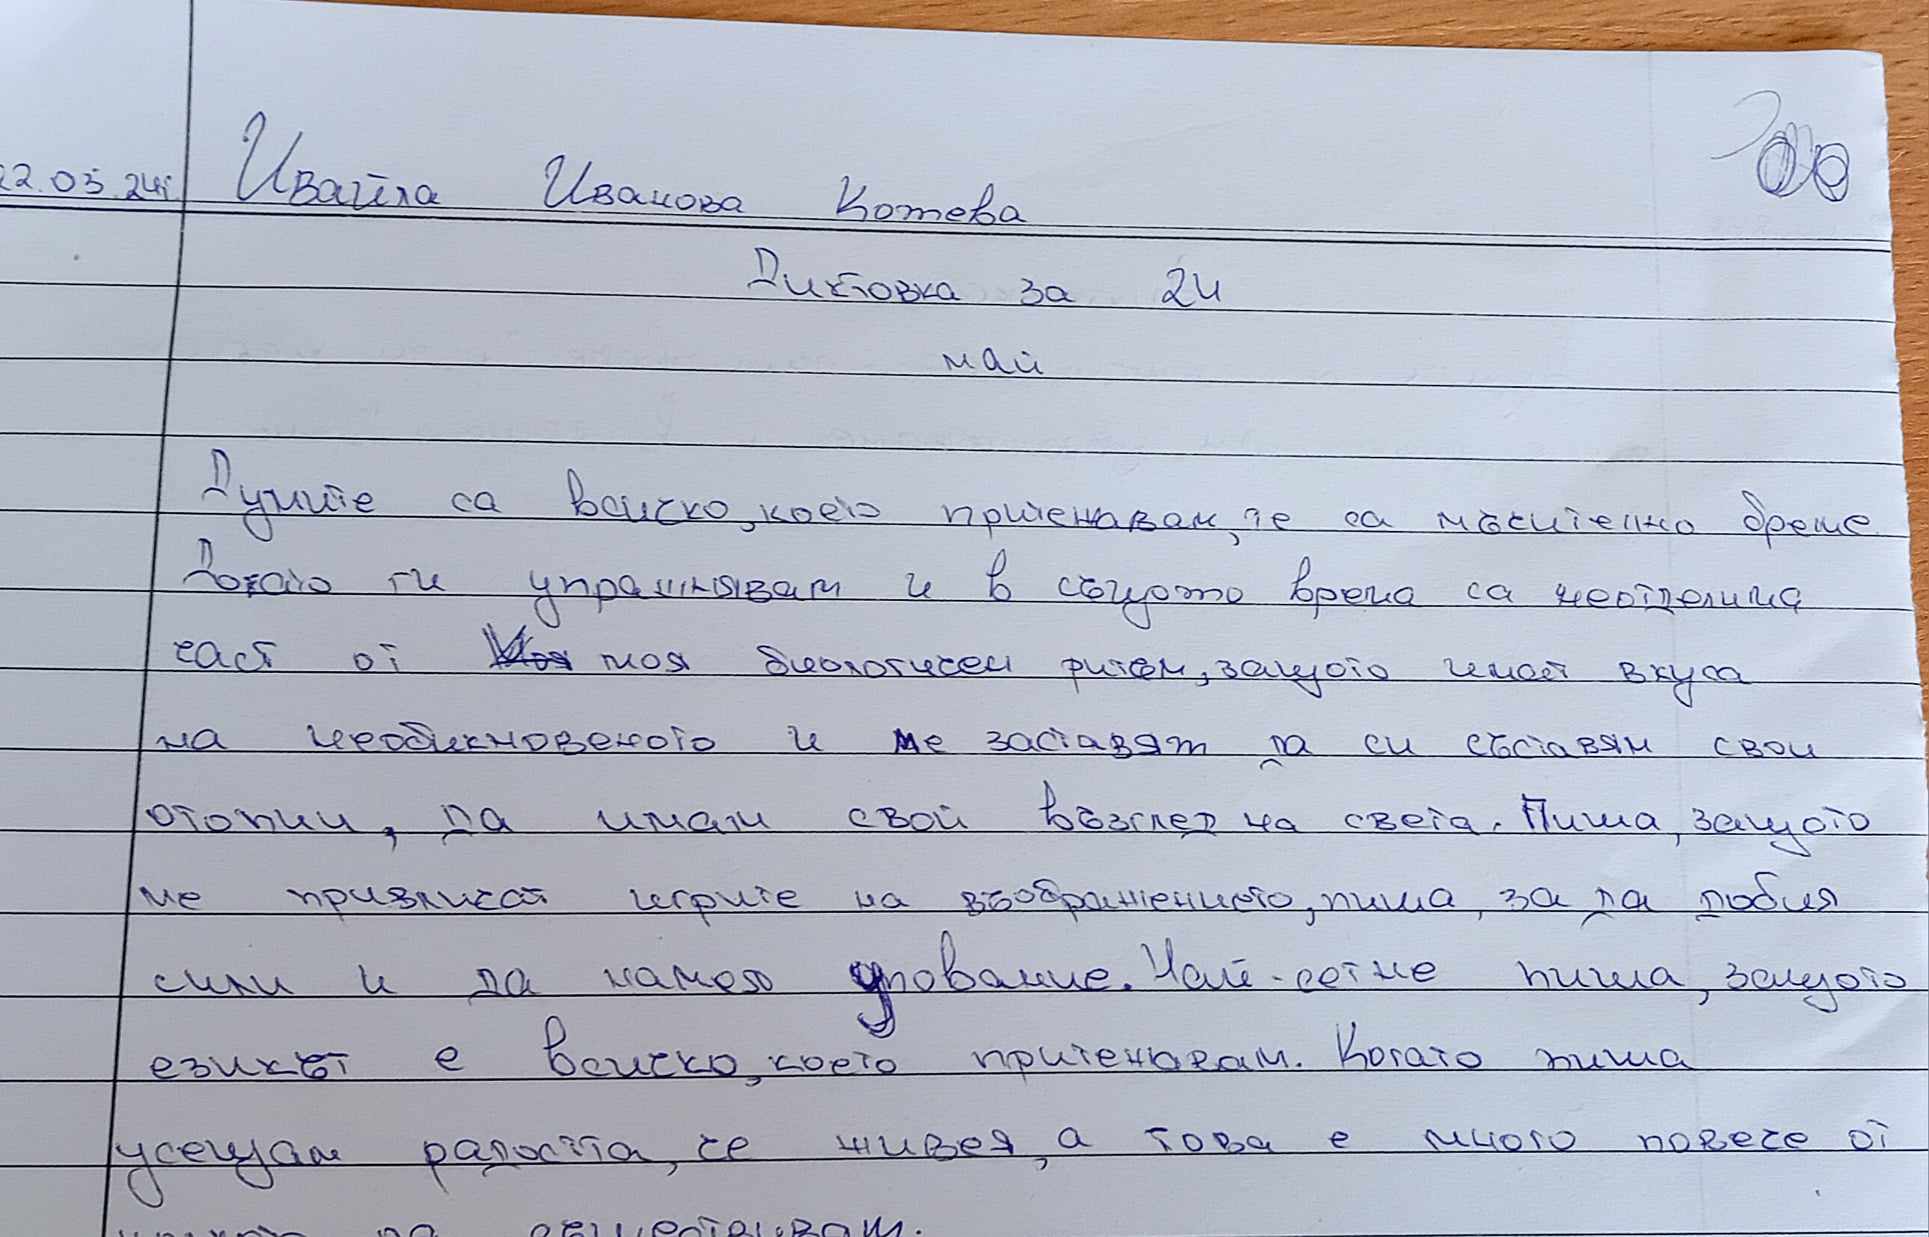 22.05.24г. Ивайла Иванова Котева
Диктовка за 24
май
Думите са всичко, което притежавам, че са мъчително бреме
Когато ги упражнявам и в същото време са неотделима
част от моя биологичен ритъм, защото имат вкуса
на необикновеното и ме заставят да си съставям свои
отопии, да имам свой възглед на света. Пиша, защото
ме привличат игрите на въображението, пиша, за да добия
сили и да намеря упование. Най-сетне пиша, защото
езикът е всичко, което притежавам. Когато пиша
усещам радостта, че живея, а това е много повече от
да съществувам.